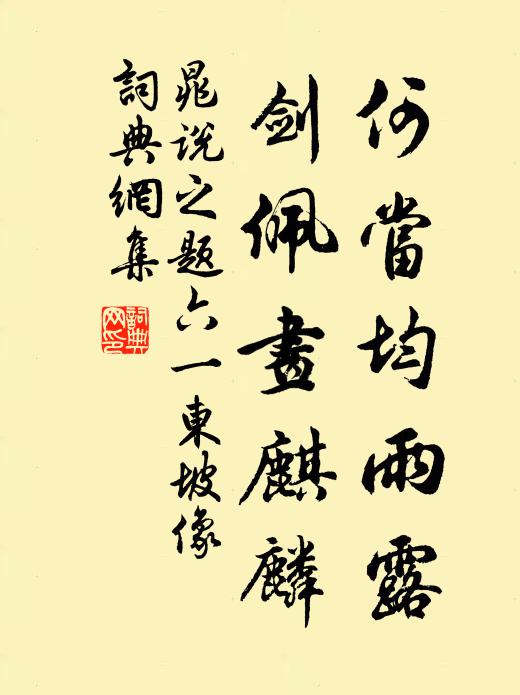 何當均雨露
劍佩畫麒麟
晁說之題六一東坡像
詞典網集
詞典網印